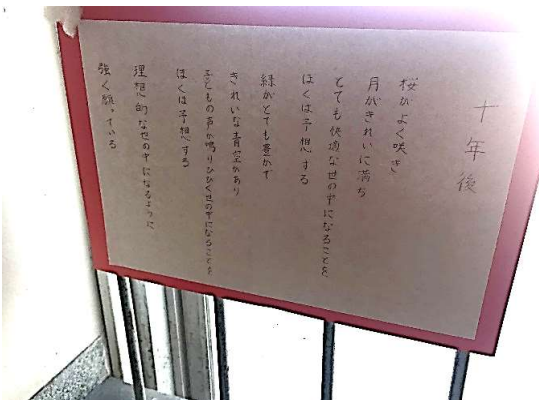 十年後
桜がよく咲き
月がきれいに満ち
とても快適な世の中になることを
ぼくは予想する
緑がとても豊かで
きれいな青空があり
子どもの声が鳴りひびくせの中になることを
ぼくは予想する
理想的なせの中になるように
強く願っている